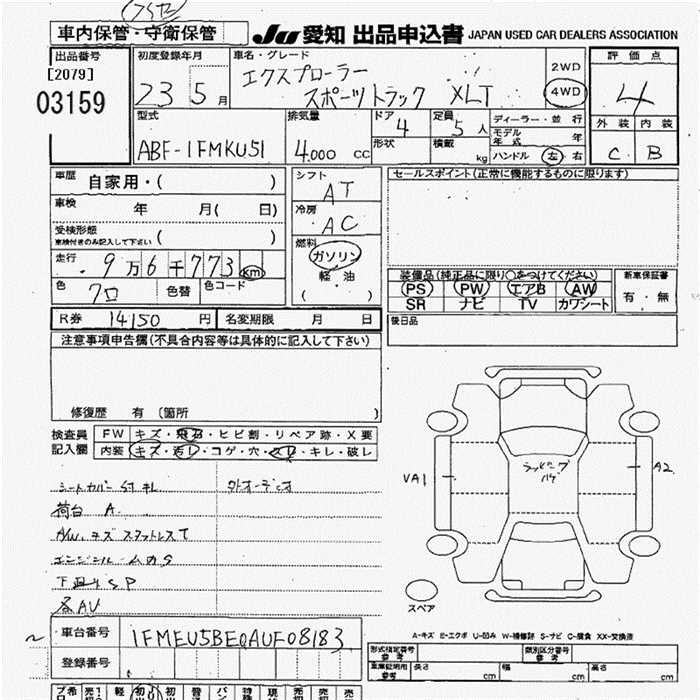 車内保管・守衛保管
JU 愛知 出品申込書 JAPAN USED CAR DEALERS ASSOCIATION
出品番号
[2079]
03159
初度登録年月
23 5月
車名・グレード
エクスプローラー
スポーツトラック XLT
2WD
4WD
評価点
4
外装 内装
C B
型式
ABF-1FMKU51
排気量
4,000 cc
ドア
4
形状
定員
5人
積載
kg
ディーラー・並行
モデル年式 年
ハンドル 左 右
車歴
自家用・( )
車検
年 月( 日)
受検形態
車検付きのみ記入して下さい ( )
走行
9万6千773km
色
クロ
色替
色コード
シフト
AT
冷房
AC
燃料
ガソリン
軽・油
( )
セールスポイント(正常に機能するものに限ります)
装備品(純正品に限り○をつけてください)
PS PW エアB AW
SR ナビ TV カワシート
新車保証書
有・無
後日品
R券 14150 円
名変期限 月 日
注意事項申告欄(不具合内容等は具体的に記入して下さい)
修復歴 有 (箇所 )
検査員
記入欄
FW キズ・飛石・ヒビ割・リペア跡・X要
内装 キズ・汚レ・コゲ・穴・スレ・キレ・破レ
シートカバー付キレ
外オーディオ
荷台 A.
A/W、キズ スタットレスT
エンジンルームカS
下廻りSP
各AU
VA1
A2
スペア
A-キズ E-エクボ U-凹み W-補修跡 S-サビ C-腐食 XX-交換済
車台番号 1FMEU5BE0AUF08183
登録番号
形式指定番号
参考
類別区分番号
参考
車庫証明用
参考
長さ cm
幅 cm
高さ cm